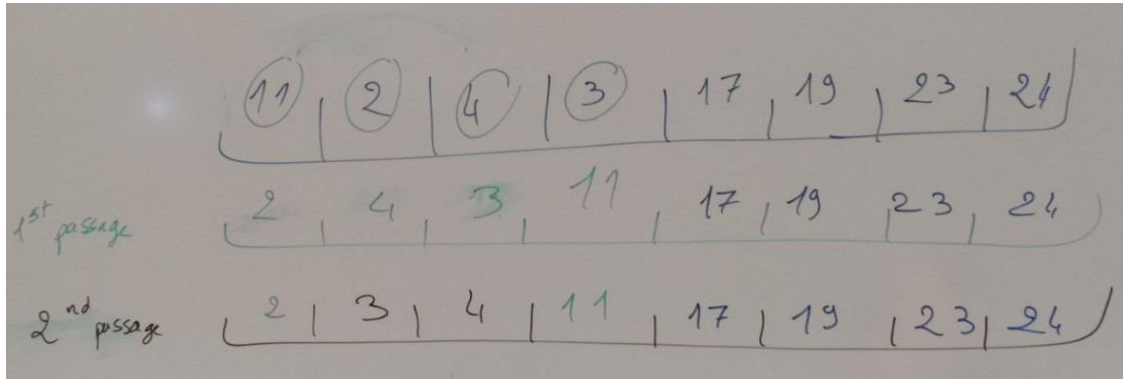 11 2 4 3 17 19 23 24
1st passage 2 4 3 11 17 19 23 24
2nd passage 2 3 4 11 17 19 23 24